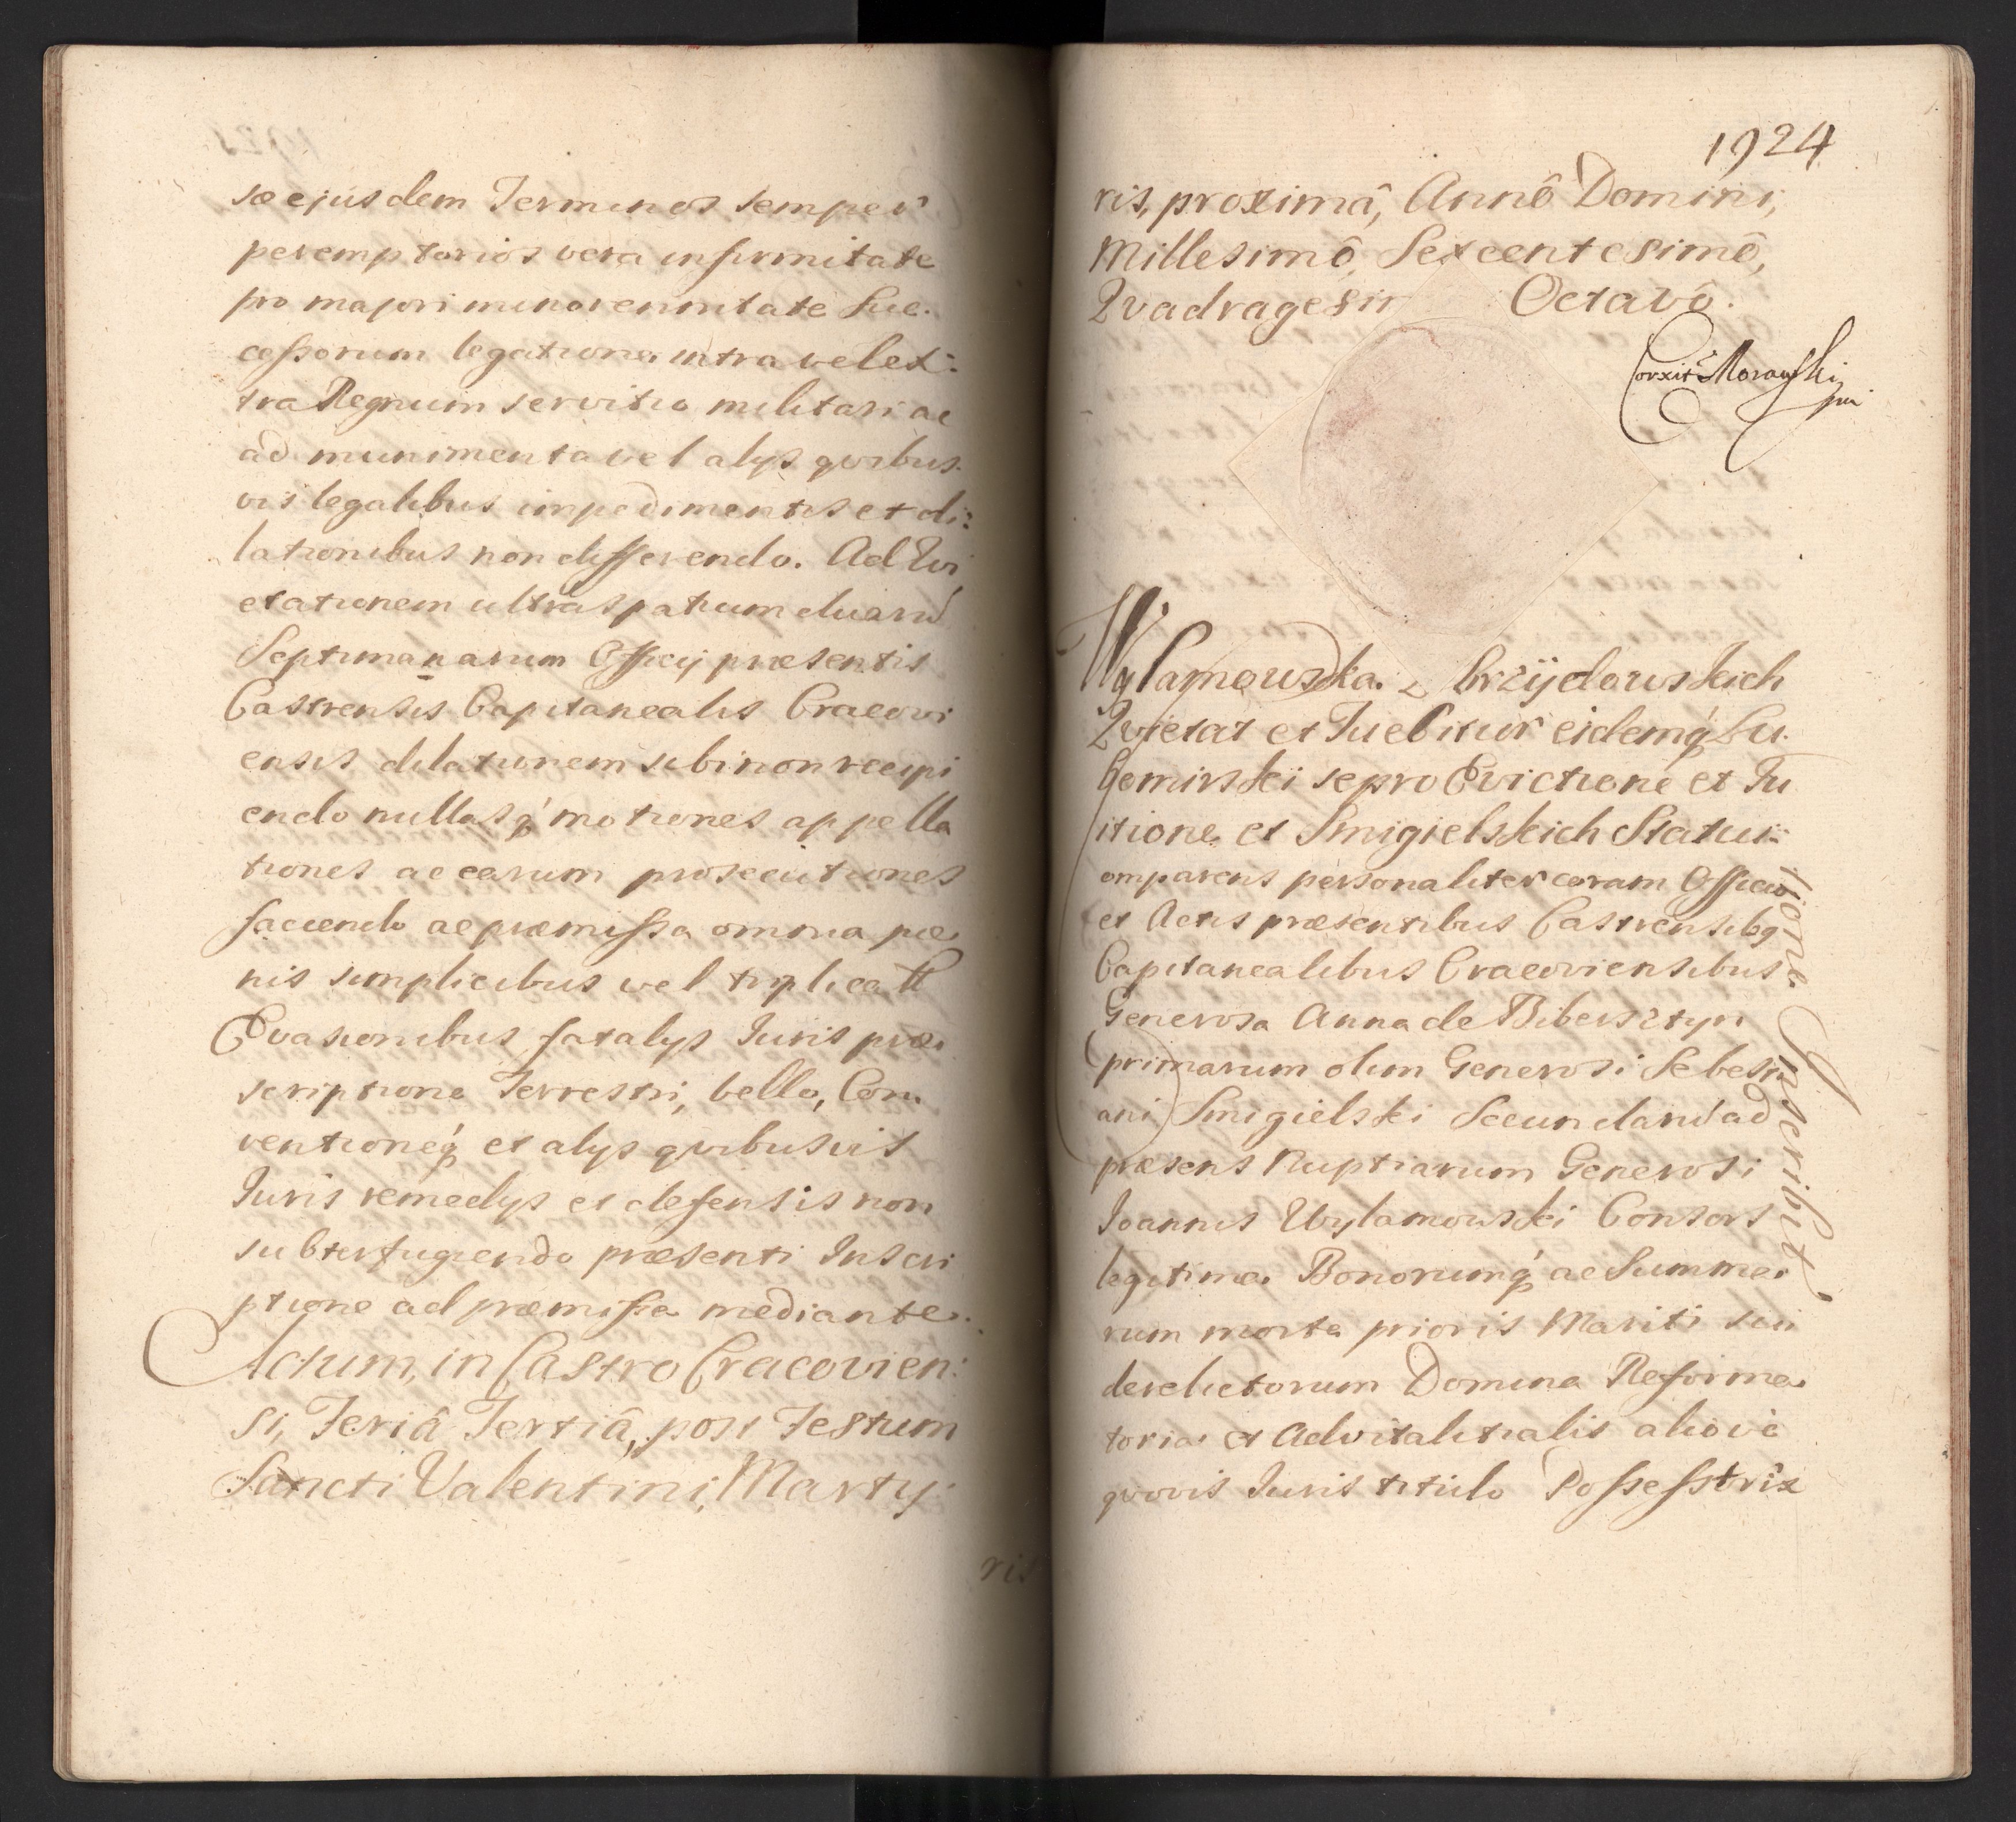 sæ ejusdem Terminos semper
peremptorios vera infirmitate
pro majori minorennitate Suc.
cessorum legatione intra vel ex:
tra Regnum servitio militari ac
ad munimenta vel alys qvibus.
vis legalibus impedimentis et di:
lationibus non differendo. Ad Evi
ctationem ultra spatium duarū
Septimanarum Officij præsentis
Castrensis Capitanealis Cracovi
ensis dilationem sibi non recipi
endo nullasq́ motiones appella
tiones ac earum prosecutiones
faciendo ac præmissa omnia pæ
nis simplicibus vel triplicatt
Evasionibus fatalys Iuris præ
scriptione Terrestri, bello, Con
ventioneq́ et alys qvibusvis
Iuris remedys et defensis non
subterfugiendo præsenti Inscri
ptione ad præmissa mediante.
Actum, in Castro Cracovien:
si, Feriâ Tertiâ, post Festum
Sancti Valentini, Marty:
ris
1924
ris, proximâ, Annô Domini,
Millesimô, Sexcentesimô,
Qvadragesim Octavô.
Corxit Morawski
mp
Wylamowska z Brzÿdowskich
Qvietat et Tuebitur eidemq́ Lu.
bomirski se pro Evictione et Tu
itione et Smigielskich Statui:
tione Inscribit
omparens personaliter coram Officio
et Actis præsentibus Castrensibq
Capitanealibus Cracoviensibus
Generosa Anna de Bibersztyn
primarum olim Generosi Sebesti
ani Smigielski Secundarū ad
præsens Nuptiarum Generosi
Joannis Wylamowski Consors
legitima Bonorumq́ ac Summa
rum morte prioris Mariti sui
derelictorum Domina Reforma
toria et Advitalitialis aliove
qvovis Iuris titulo Possesstrix